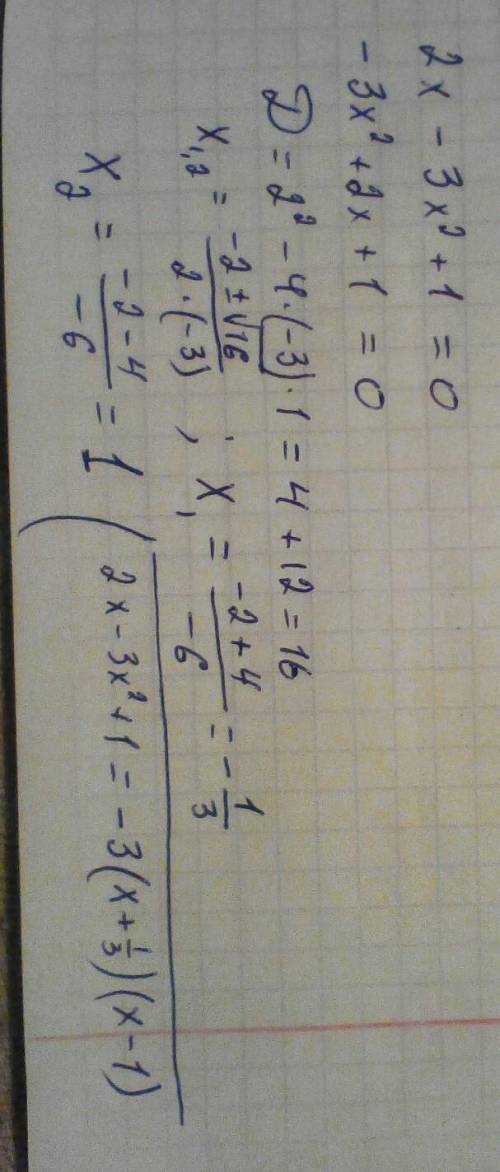 2x - 3x² + 1 = 0
- 3x² + 2x + 1 = 0
D = 2² - 4·(-3)·1 = 4 + 12 = 16
x₁,₂ = (-2 ± √16)/(2·(-3)) ; x₁ = (-2 + 4)/(-6) = -1/3
x₂ = (-2 - 4)/(-6) = 1
2x - 3x² + 1 = -3(x + 1/3)(x - 1)